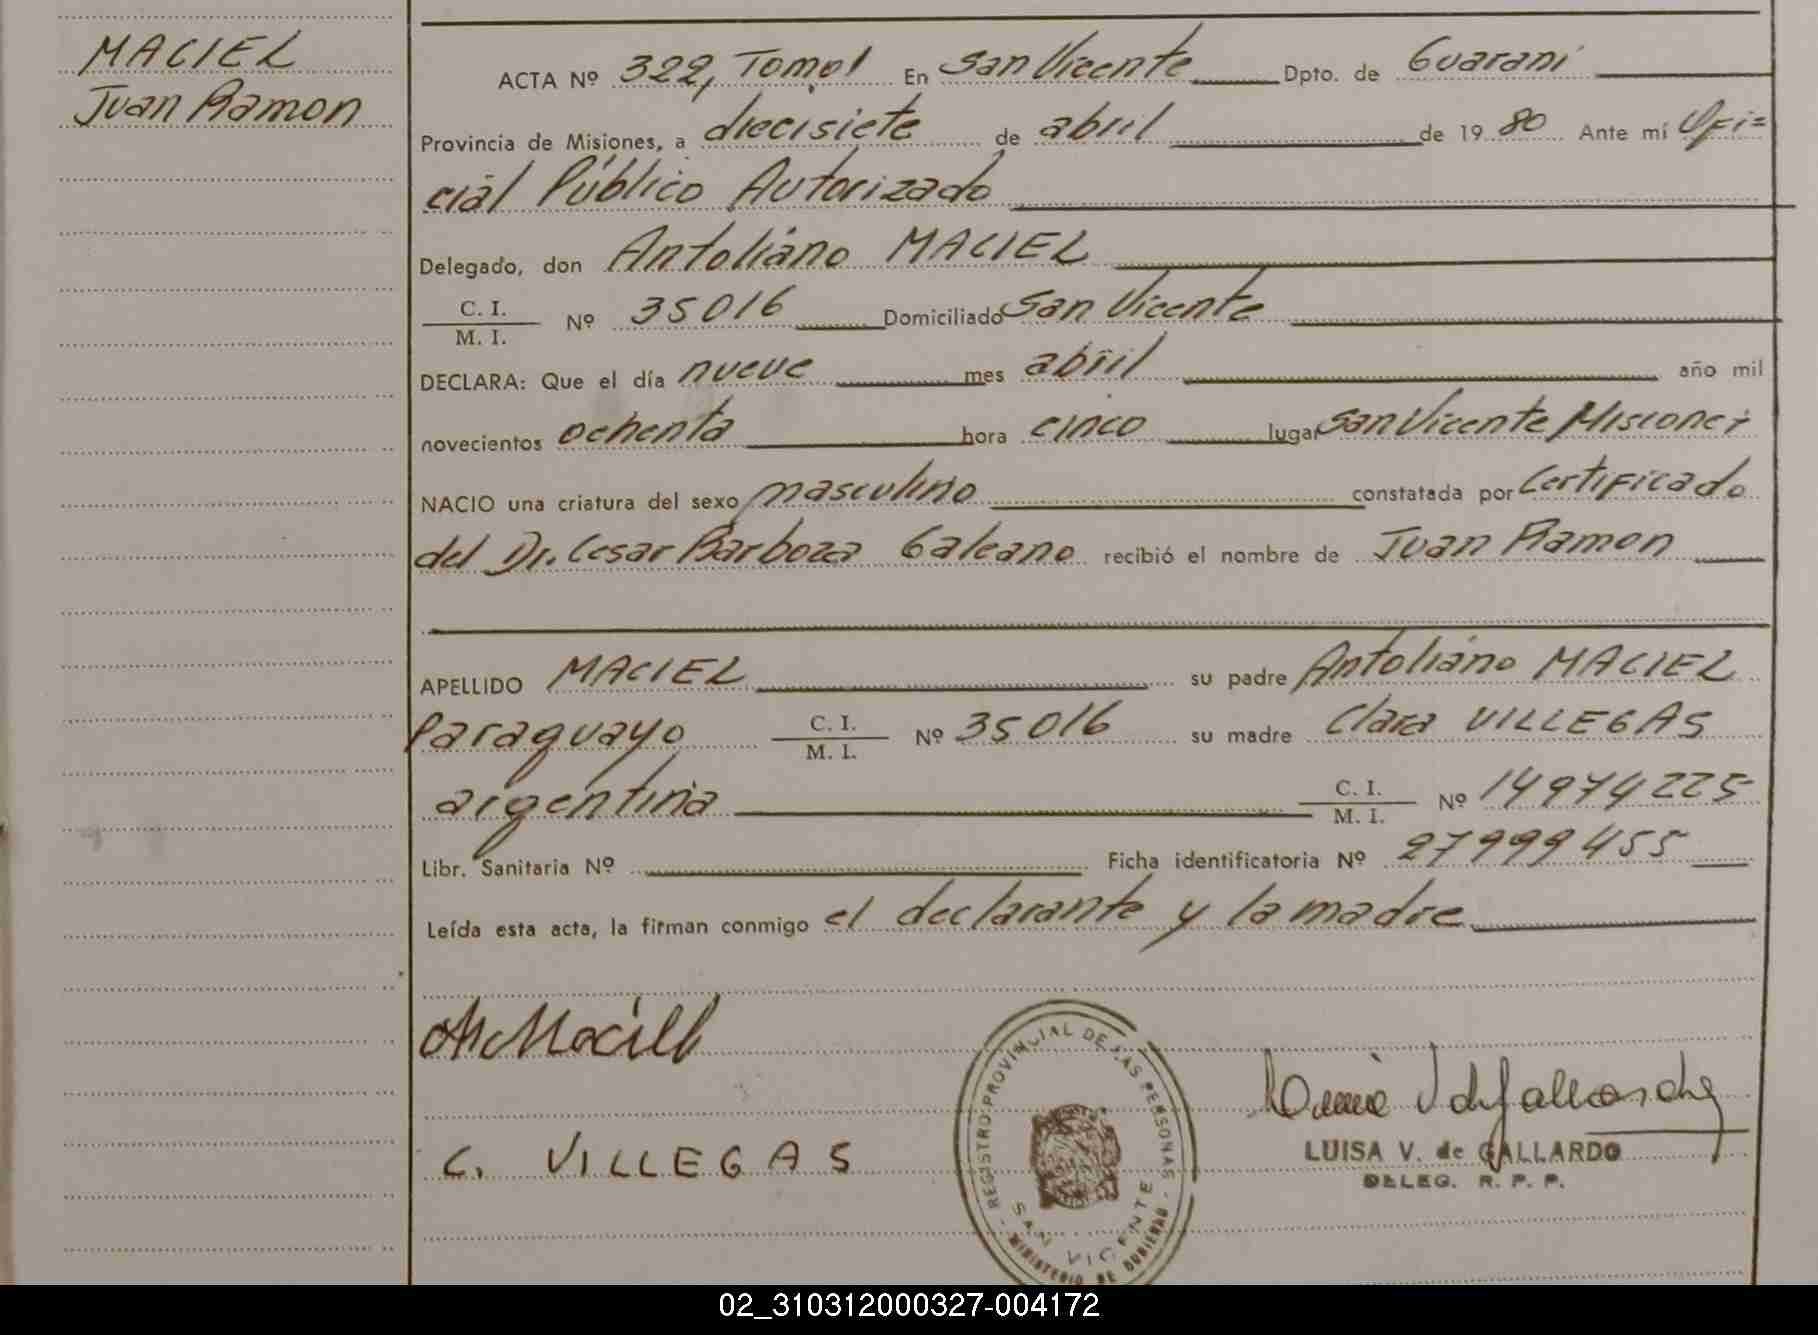 MACIEL
Juan Ramon
ACTA Nº 322, Tomo I En San Vicente Dpto. de Guaraní
Provincia de Misiones, a diecisiete de abril de 1980 Ante mí Ofi=
cial Público Autorizado
Delegado, don Antoliano MACIEL
C. I.
M. I. Nº 35016 Domiciliado San Vicente
DECLARA: Que el día nueve mes abril año mil
novecientos ochenta hora cinco lugar San Vicente Misiones
NACIO una criatura del sexo masculino constatada por Certificado
del Dr. Cesar Barboza Galeano recibió el nombre de Juan Ramon
APELLIDO MACIEL su padre Antoliano MACIEL
Paraguayo C. I.
M. I. Nº 35016 su madre Clara VILLEGAS
argentina C. I.
M. I. Nº 14974225
Libr. Sanitaria Nº Ficha identificatoria Nº 27999455
Leída esta acta, la firman conmigo el declarante y la madre
C. VILLEGAS
REGISTRO PROVINCIAL DE LAS PERSONAS
SAN VICENTE
MINISTERIO DE GOBIERNO
LUISA V. de GALLARDO
DELEG. R. P. P.
02_310312000327-004172